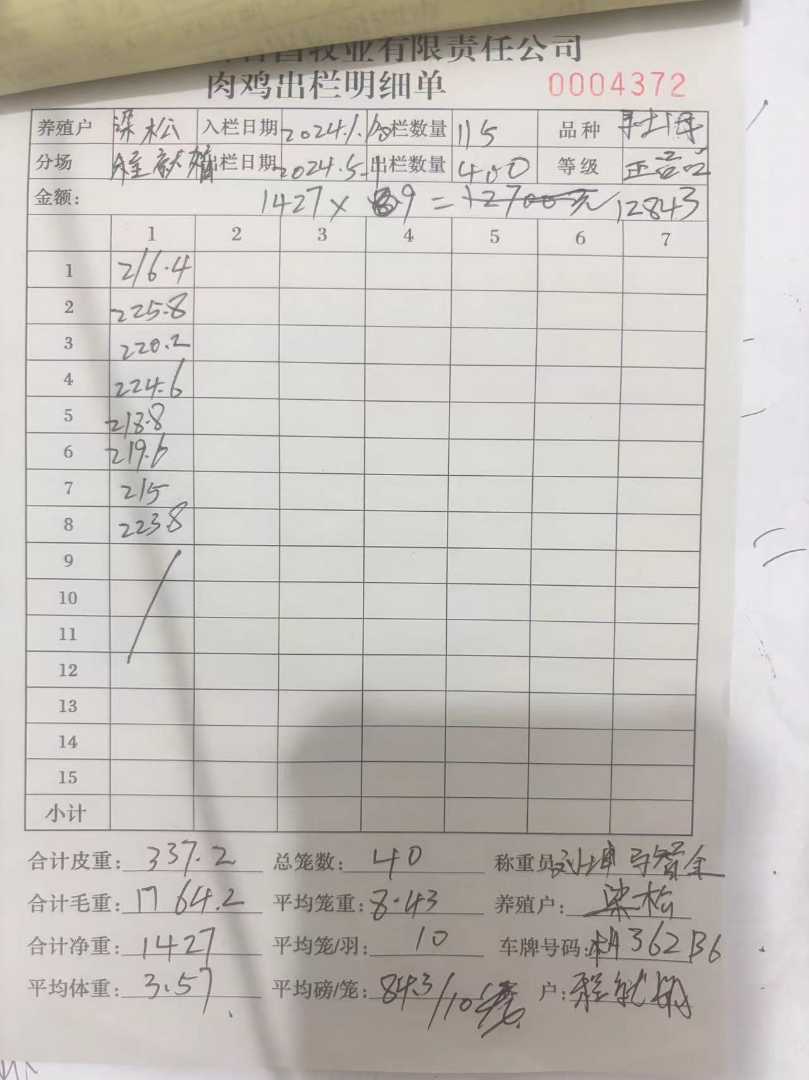 牧业有限责任公司
肉鸡出栏明细单 0004372
养殖户 梁松 入栏日期 2024.1.10 栏数量 115 品种
分场 出栏日期 2024.5. 出栏数量 400 等级
金额: 1427 × 9 = 12700元 12843
1 2 3 4 5 6 7
1 216.4
2 225.8
3 220.2
4 224.6
5 218.8
6 219.6
7 215
8 223.8
9
10
11
12
13
14
15
小计
合计皮重: 337.2 总笼数: 40 称重员
合计毛重: 1764.2 平均笼重: 8.43 养殖户: 梁松
合计净重: 1427 平均笼/羽: 10 车牌号码: A362B6
平均体重: 3.57 平均磅/笼: 84.3/10 户: